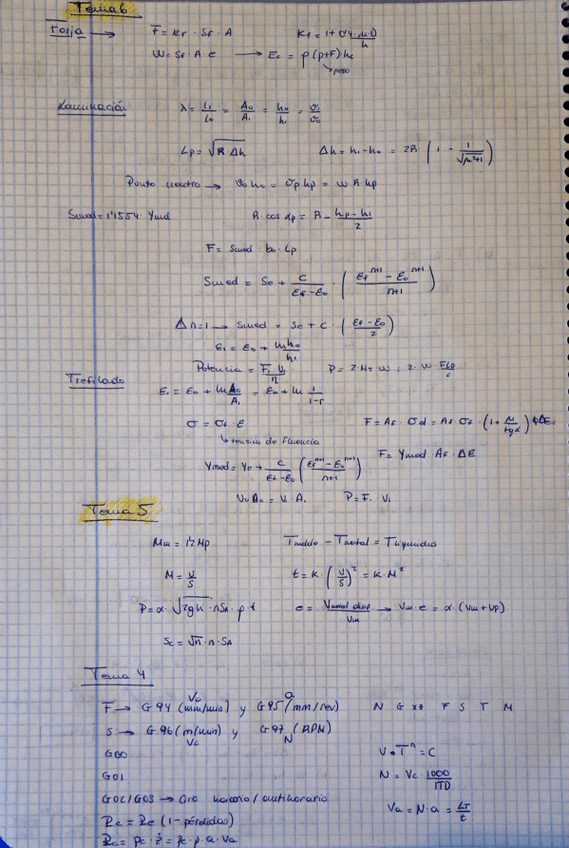 Tema 6
Forja → F = Kf · Sf · A    Kf = 1 + 0'4·μ·D / h
W = Sf · A · e → Ec = p(p+F)·hc
peso
Laminación    λ = L1/L0 = A0/A1 = h0/h1 = v1/v0
Lp = √(R·Δh)    Δh = h1 - h0 = 2R (1 - 1/√(μ²+1))
Punto neutro → v0 h0 = vp hp = w R hp
Smed = 1'1554 · Ymd    R cos αp = R - (hp - h1)/2
F = Smed · b0 · Lp
Smed = Se + C/(Ef - E0) · ((Ef^(n+1) - E0^(n+1))/(n+1))
Δ n=1 → Smed = Se + C · ((Ef - E0)/2)
E1 = E0 + ln h0/h1
Potencia = F1 v1/η    P = 2·MT w = 2·w F Lp/2
Trefilado
E1 = E0 + ln A0/A1 = E0 + ln 1/(1-r)
σ = σf · E    F = Af · σd = Af σf · (1 + μ/tgα) φΔE
tensión de fluencia
Ymed = Ye + C/(Ef - E0) ((Ef^(n+1) - E0^(n+1))/(n+1))    F = Ymed Af · ΔE
V0 A0 = V1 · A1    P = F1 V1
Tema 5
Mm = 1'2 Mp    Tmolde - Tmetal = Tliquidus
M = V/S    t = K · (V/S)² = K · M²
P = α · √(2gh) · nSA · ρ · t    e = Vmetal disp / Vm → Vm · e = α · (Vm + Vp)
Sc = √n · n · SA
Tema 4
F → G94 (mm/min) y G95 (mm/rev)    N G XZ F S T M
Vc    a
S → G96 (m/min) y G97 (RPM)
Vc    N
G00    V · T^n = C
G01    N = Vc 1000/ΠD
G02/G03 → Giro horario/antihorario
Va = N · a = LT/t
Pc = Pe (1 - pérdidas)
Pc = pc · ż = pc · p · a · Va